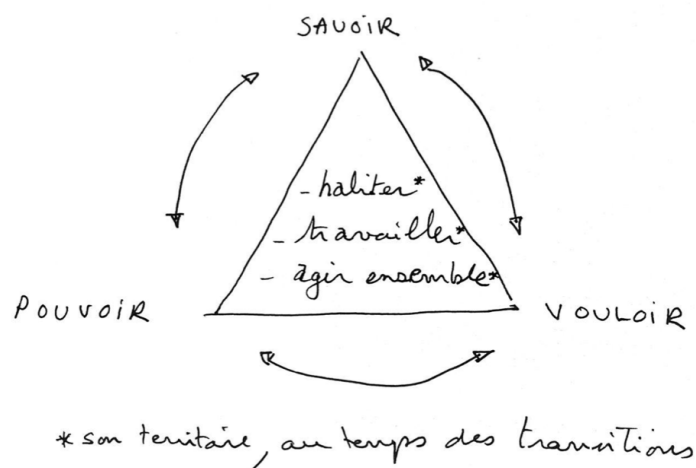 SAVOIR
- habiter*
- travailler*
- agir ensemble*
POUVOIR
VOULOIR
* son territoire, au temps des transitions